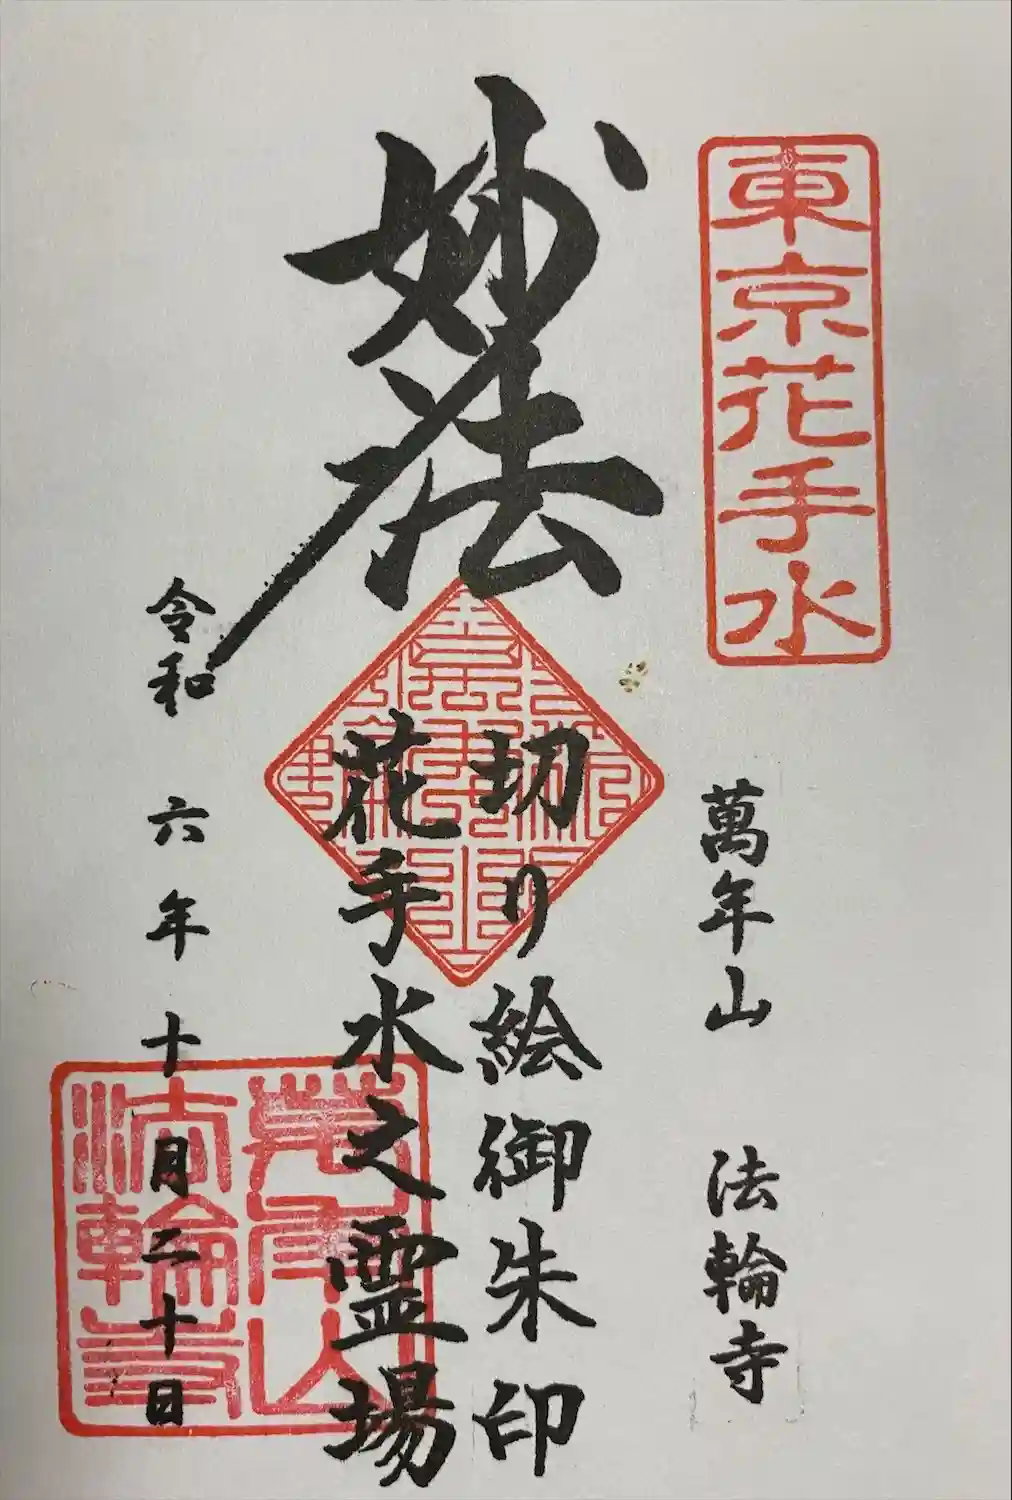 東京花手水
萬年山 法輪寺
妙法
切り絵御朱印
花手水之霊場
令和 六年 十月二十日
萬年山
法輪寺